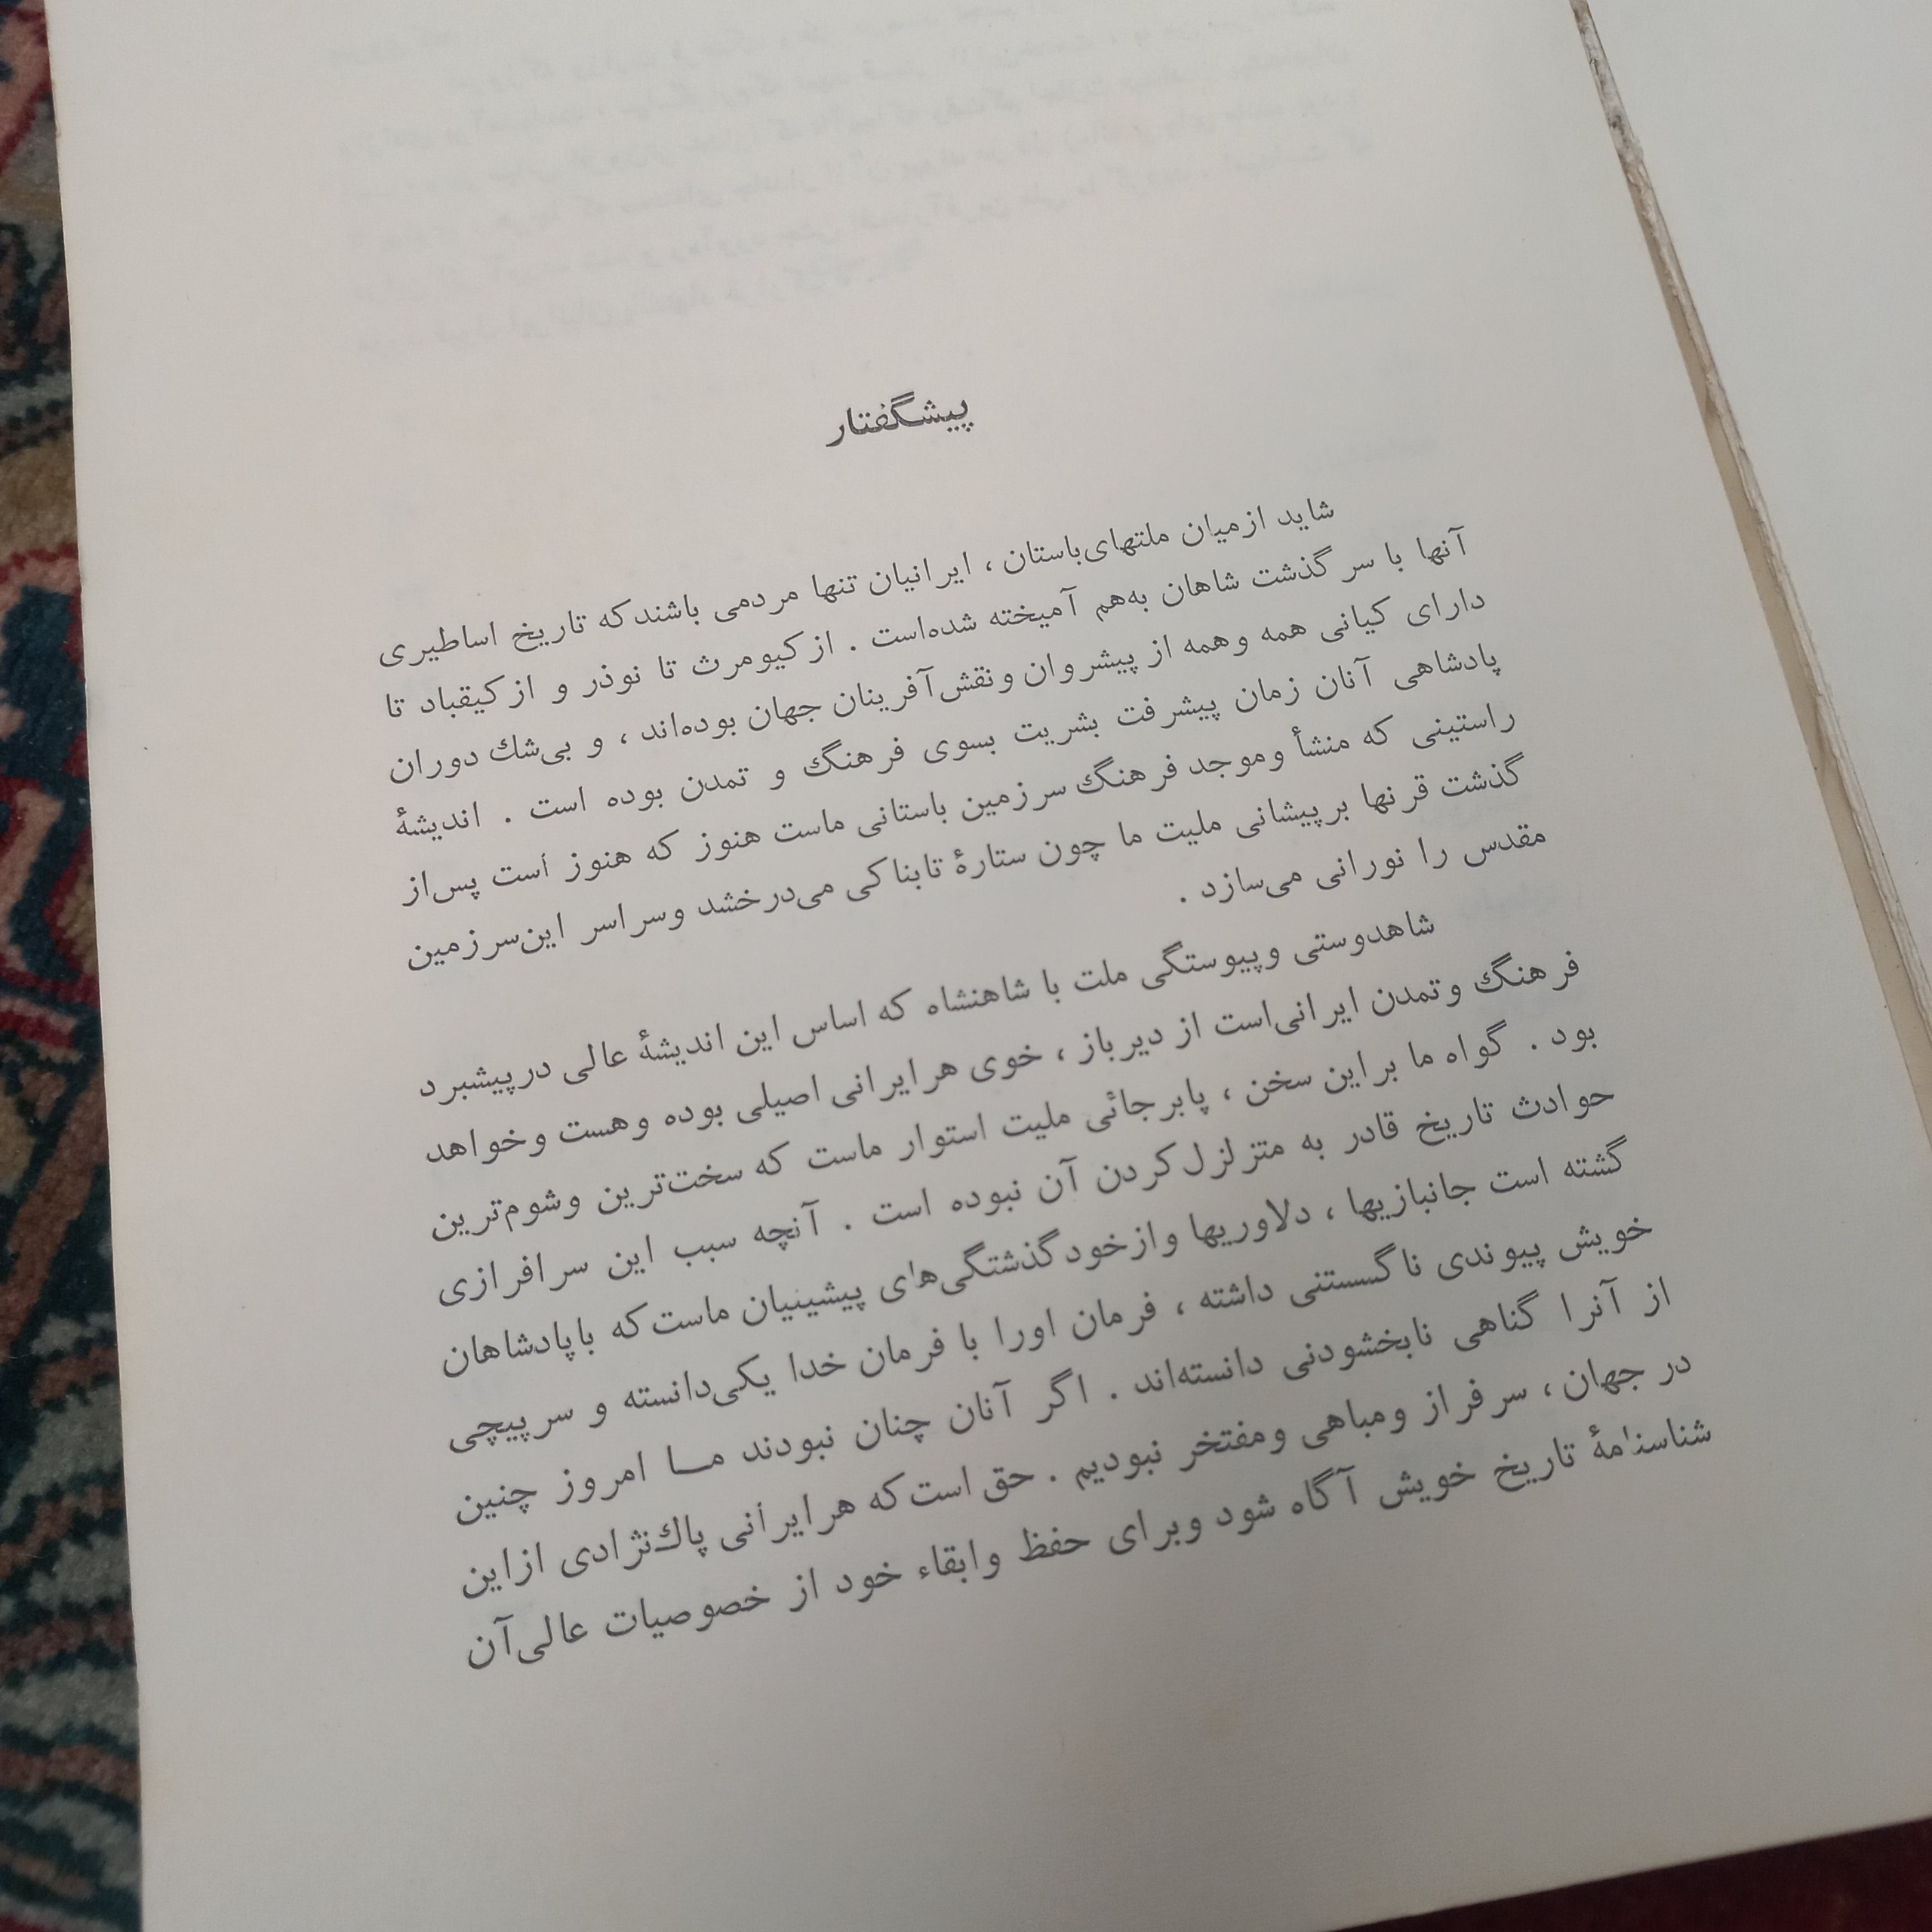 پیشگفتار
شاید ازمیان ملتهای‌باستان ، ایرانیان تنها مردمی باشندکه تاریخ اساطیری
آنها با سرگذشت شاهان به‌هم آمیخته شده‌است . ازکیومرث تا نوذر و ازکیقباد تا
دارای کیانی همه وهمه از پیشروان ونقش‌آفرینان جهان بوده‌اند ، و بی‌شك دوران
پادشاهی آنان زمان پیشرفت بشریت بسوی فرهنگ و تمدن بوده است . اندیشهٔ
راستینی که منشأ وموجد فرهنگ سرزمین باستانی ماست هنوز که هنوز است پس‌از
گذشت قرنها برپیشانی ملیت ما چون ستارهٔ تابناکی می‌درخشد وسراسر این‌سرزمین
مقدس را نورانی می‌سازد .
شاهدوستی وپیوستگی ملت با شاهنشاه که اساس این اندیشهٔ عالی درپیشبرد
فرهنگ وتمدن ایرانی‌است از دیرباز ، خوی هرایرانی اصیلی بوده وهست وخواهد
بود . گواه ما براین سخن ، پابرجائی ملیت استوار ماست که سخت‌ترین وشوم‌ترین
حوادث تاریخ قادر به متزلزل‌کردن آن نبوده است . آنچه سبب این سرافرازی
گشته است جانبازیها ، دلاوریها وازخودگذشتگی‌های پیشینیان ماست‌که باپادشاهان
خویش پیوندی ناگسستنی داشته ، فرمان اورا با فرمان خدا یکی‌دانسته و سرپیچی
از آنرا گناهی نابخشودنی دانسته‌اند . اگر آنان چنان نبودند مــا امروز چنین
در جهان، سرفراز ومباهی ومفتخر نبودیم . حق است‌که هرایرانی پاك‌نژادی ازاین
شناسنامهٔ تاریخ خویش آگاه شود وبرای حفظ وابقاء خود از خصوصیات عالی‌آن